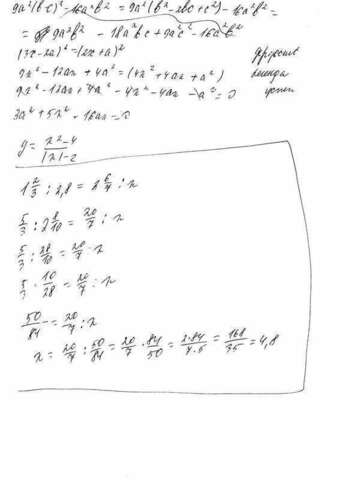 9a²(b-c)² - 16a²b² = 9a²(b² - 2bc + c²) - 16a²b² =
= 9a²b² - 18a²bc + 9a²c² - 16a²b²
(3x-2a)² = (2x+a)²
9x² - 12ax + 4a² = (4x² + 4ax + a²)
9x² - 12ax + 4a² - 4x² - 4ax - a² = 0
3a² + 5x² - 16ax = 0
y = x²-4 / |x|-2
1 2/3 : 2,8 = 2 6/7 : x
5/3 : 2 8/10 = 20/7 : x
5/3 : 28/10 = 20/7 : x
5/3 · 10/28 = 20/7 : x
50/84 = 20/7 : x
x = 20/7 : 50/84 = 20/7 · 84/50 = 2·84/7·5 = 168/35 = 4,8